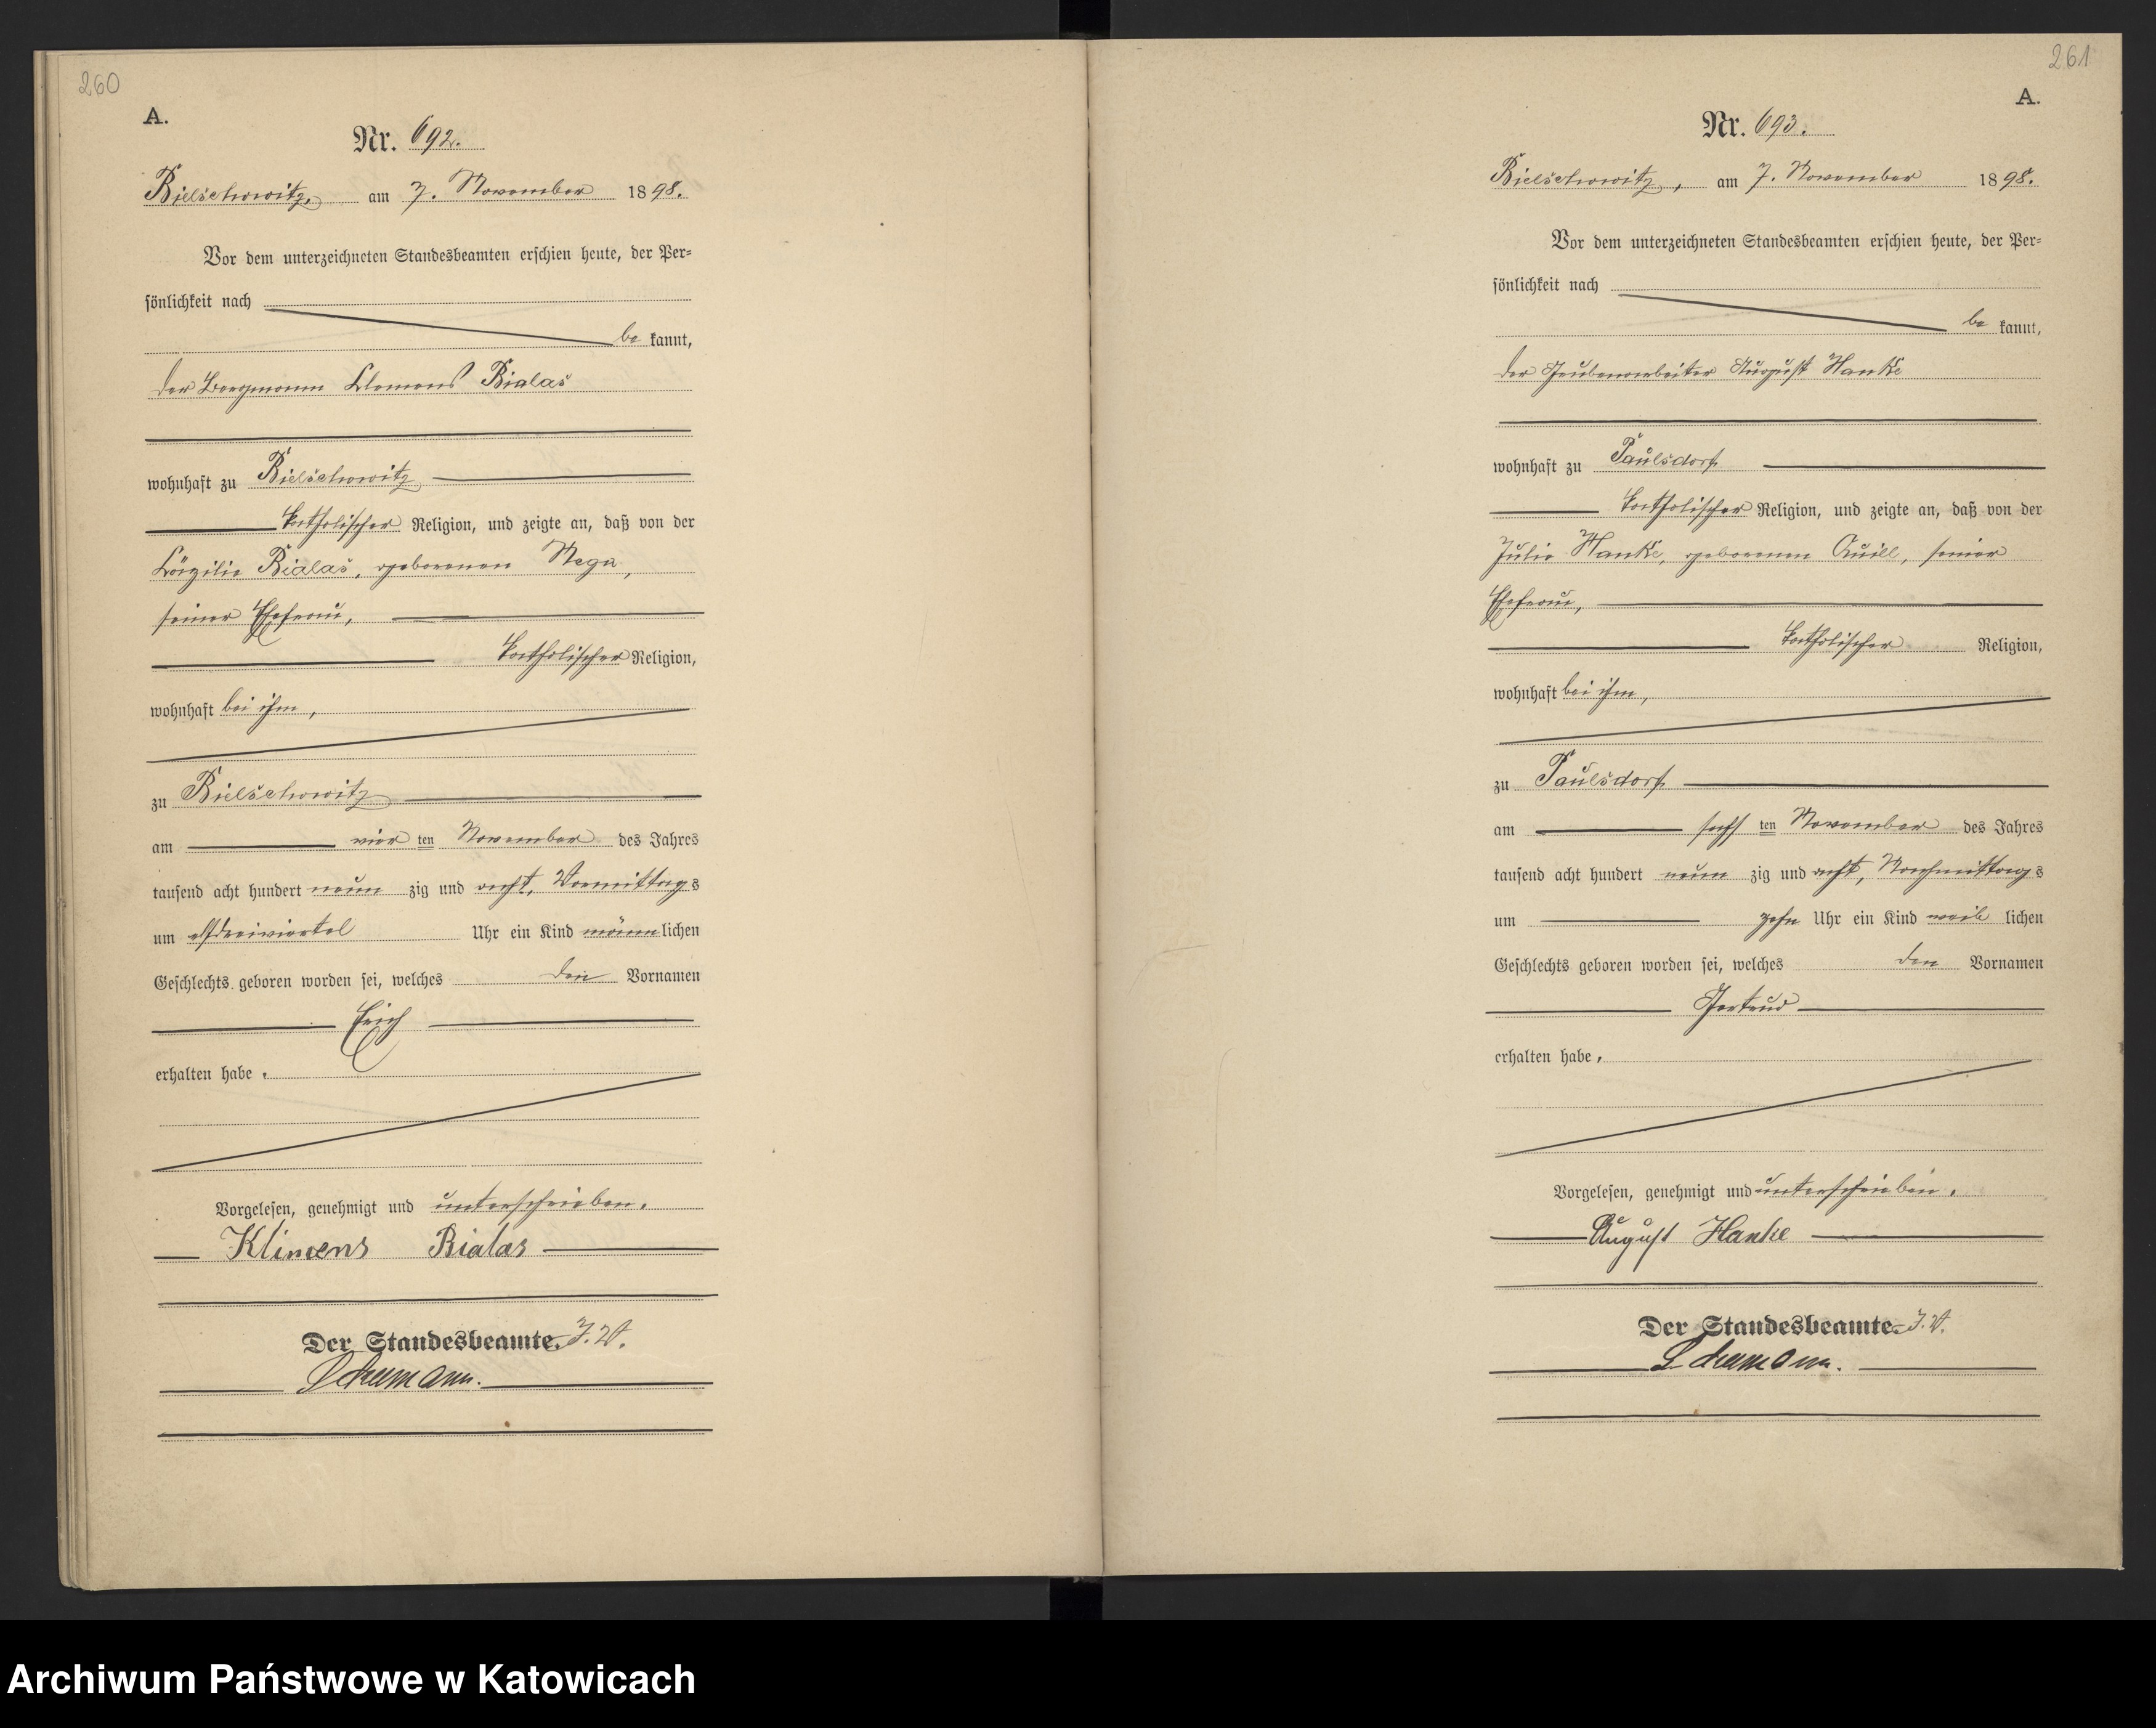 260
A.
Nr. 692.
Bielschowitz, am 7. November 1898.
Vor dem unterzeichneten Standesbeamten erschien heute, der Per-
sönlichkeit nach
be kannt,
der Bergmann Clemens Bialas
wohnhaft zu Bielschowitz
katholischer Religion, und zeigte an, daß von der
Cäzilie Bialas, geborenen
seiner Ehefrau,
katholischer Religion,
wohnhaft bei ihm,
zu Bielschowitz
am vier ten November des Jahres
tausend acht hundert neun zig und acht, Vormittags
um Uhr ein Kind männlichen
Geschlechts geboren worden sei, welches den Vornamen
Erich
erhalten habe.
Vorgelesen, genehmigt und unterschrieben.
Klimens Bialas
Der Standesbeamte. I. V.
Schumann.
261
A.
Nr. 693.
Bielschowitz, am 7. November 1898.
Vor dem unterzeichneten Standesbeamten erschien heute, der Per-
sönlichkeit nach
be kannt,
der Grubenarbeiter August Hanke
wohnhaft zu Paulsdorf
katholischer Religion, und zeigte an, daß von der
Julie Hanke, geborenen Quill, seiner
Ehefrau,
katholischer Religion,
wohnhaft bei ihm,
zu Paulsdorf
am sechs ten November des Jahres
tausend acht hundert neun zig und acht, Nachmittags
um zehn Uhr ein Kind weib lichen
Geschlechts geboren worden sei, welches den Vornamen
Gertrud
erhalten habe.
Vorgelesen, genehmigt und unterschrieben.
August Hanke
Der Standesbeamte. I. V.
Schumann.
Archiwum Państwowe w Katowicach